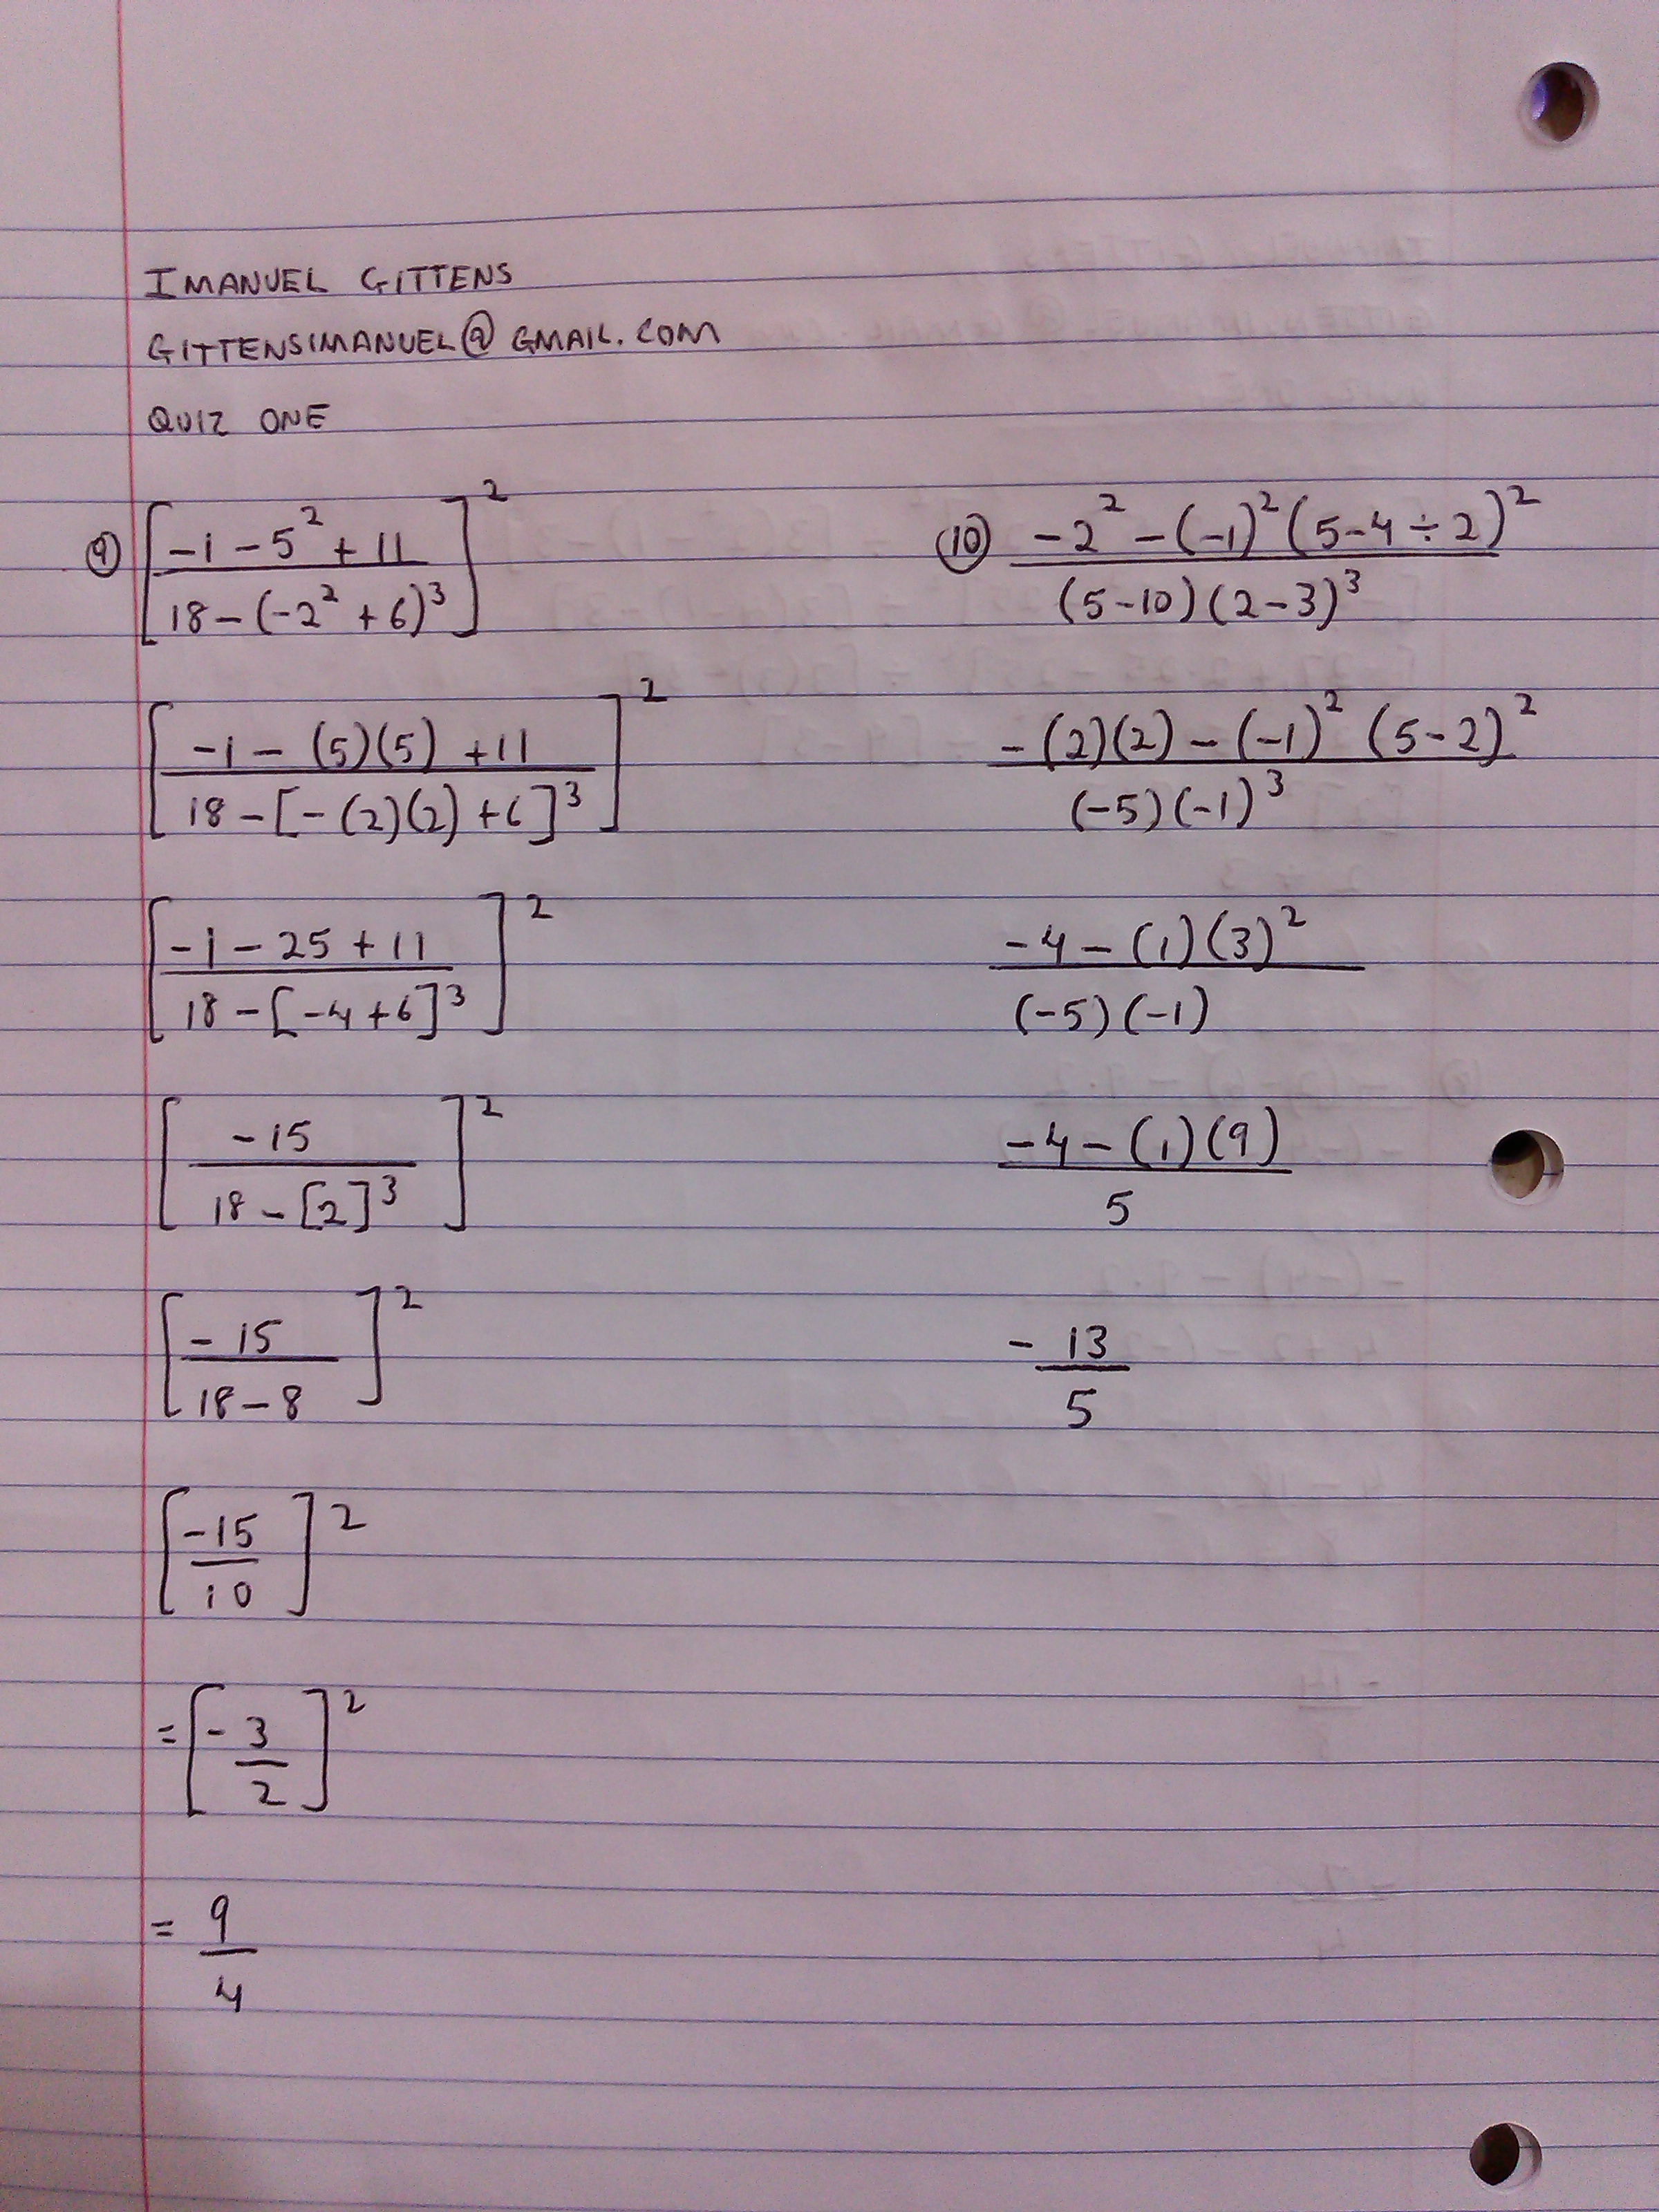 IMANUEL GITTENS
GITTENSIMANUEL@GMAIL.COM
QUIZ ONE
⑨ [(-1 - 5² + 11) / (18 - (-2² + 6)³)]²
[(-1 - (5)(5) + 11) / (18 - [-(2)(2) + 6]³)]²
[(-1 - 25 + 11) / (18 - [-4 + 6]³)]²
[-15 / (18 - [2]³)]²
[-15 / (18 - 8)]²
[-15 / 10]²
= [-3/2]²
= 9/4
⑩ (-2² - (-1)² (5 - 4 ÷ 2)²) / ((5 - 10)(2 - 3)³)
(-(2)(2) - (-1)² (5 - 2)²) / ((-5)(-1)³)
(-4 - (1)(3)²) / ((-5)(-1))
(-4 - (1)(9)) / 5
-13/5